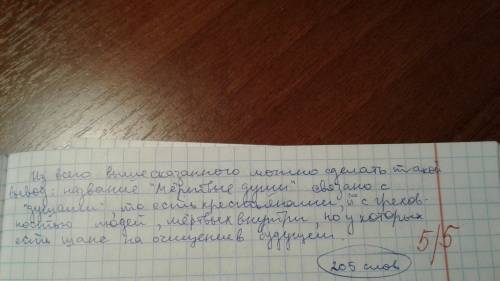 Из всего вышесказанного можно сделать такой
вывод: название "Мёртвые души" связано с
"душами", то есть крестьянами, и с грехов-
ностью людей, мёртвых внутри, но у которых
есть шанс на очищение в будущем.
5/5
205 слов